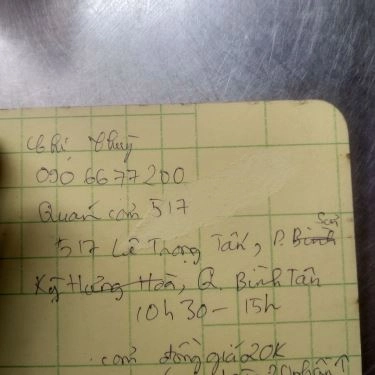 Chị Thuý
090 6677200
Quán cơm 517
517 Lê Trọng Tấn, P. Bình Sơn
Kỳ Hưng Hoà, Q. Bình Tân
10h30 - 15h
. cơm đồng giá 20K